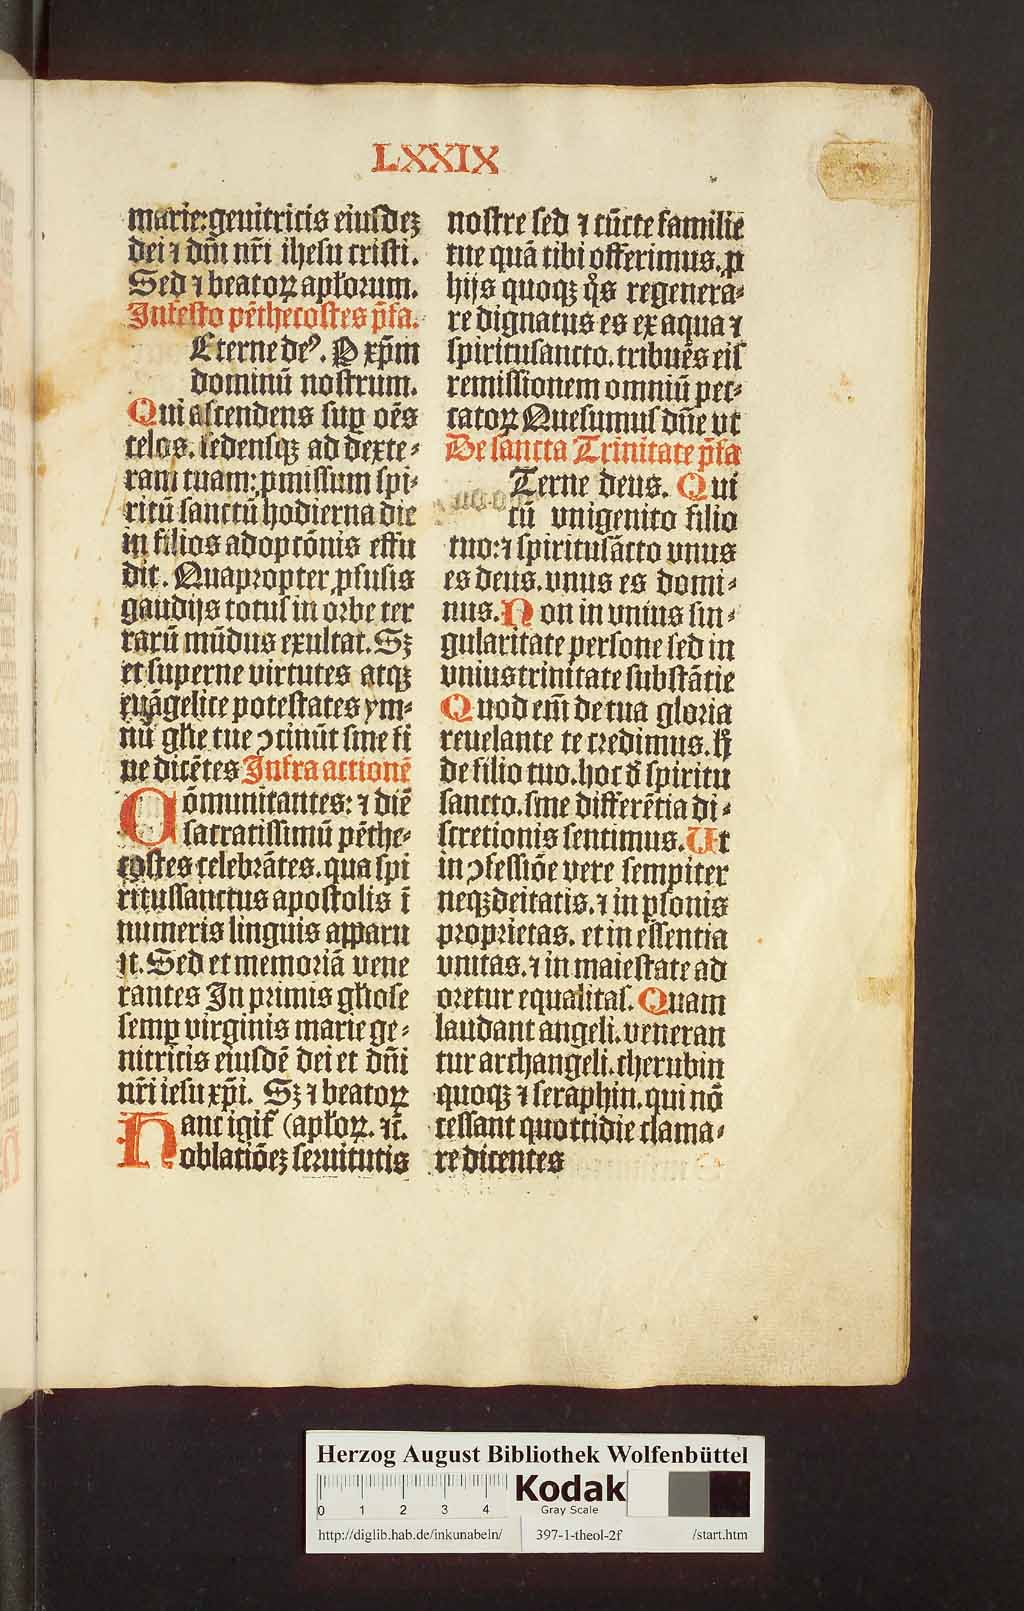 LXXIX
marie: genitricis eiusdeꝫ
dei ⁊ dn̄i nr̄i ihesu cristi.
Sed ⁊ beatoꝝ apl̓orum.
In festo pēthecostes p̄fa.
Eterne deꝰ. P xp̄m
dominū nostrum.
Qui ascendens suꝑ oēs
celos. sedensqꝫ ad dexte⸗
ram tuam: ꝓmissum spi⸗
ritū sanctū hodierna die
in filios adoptōnis effu
dit. Quapropter ꝓfusis
gaudijs totus in orbe ter
rarū mūdus exultat. Sꝫ
et superne virtutes atqꝫ
euāgelice potestates ym⸗
nū gl̓ie tue ꝯcinūt sine fi
ne dicētes Infra actionē
Cōmunicantes: ⁊ diē
sacratissimū pēthe⸗
costes celebrātes. qua spi
ritussanctus apostolis ī
numeris linguis apparu
it. Sed et memoriā vene
rantes In primis gl̓iose
semꝑ virginis marie ge⸗
nitricis eiusdē dei et dn̄i
nr̄i iesu xp̄i. Sꝫ ⁊ beatoꝝ
Hanc igit̓ (apl̓oꝝ. ⁊c̄.
oblatiōeꝫ seruitutis
nostre sed ⁊ cūcte familie
tue quā tibi offerimus. ꝓ
hijs quoqꝫ qͦs regenera⸗
re dignatus es ex aqua ⁊
spiritusancto. tribuēs eis
remissionem omniū pec⸗
catoꝝ Quesumus dn̄e vt
De sancta Trinitate p̄fa
Terne deus. Qui
cū vnigenito filio
tuo: ⁊ spiritusācto vnus
es deus. vnus es domi⸗
nus. Non in vnius sin⸗
gularitate persone sed in
vnius trinitate substātie
Quod em̄ de tua gloria
reuelante te credimus. h̓
de filio tuo. hoc đ spiritu
sancto. sine differētia di⸗
scretionis sentimus. Ut
in ꝯfessiōe vere sempiter
neqꝫ deitatis. ⁊ in ꝑsonis
proprietas. et in essentia
vnitas. ⁊ in maiestate ad
oretur equalitas. Quam
laudant angeli. veneran
tur archangeli. cherubin
quoqꝫ ⁊ seraphin. qui nō
cessant quottidie clama⸗
re dicentes
Herzog August Bibliothek Wolfenbüttel
0 1 2 3 4
Kodak
Gray Scale
http://diglib.hab.de/inkunabeln/ 397-1-theol-2f /start.htm